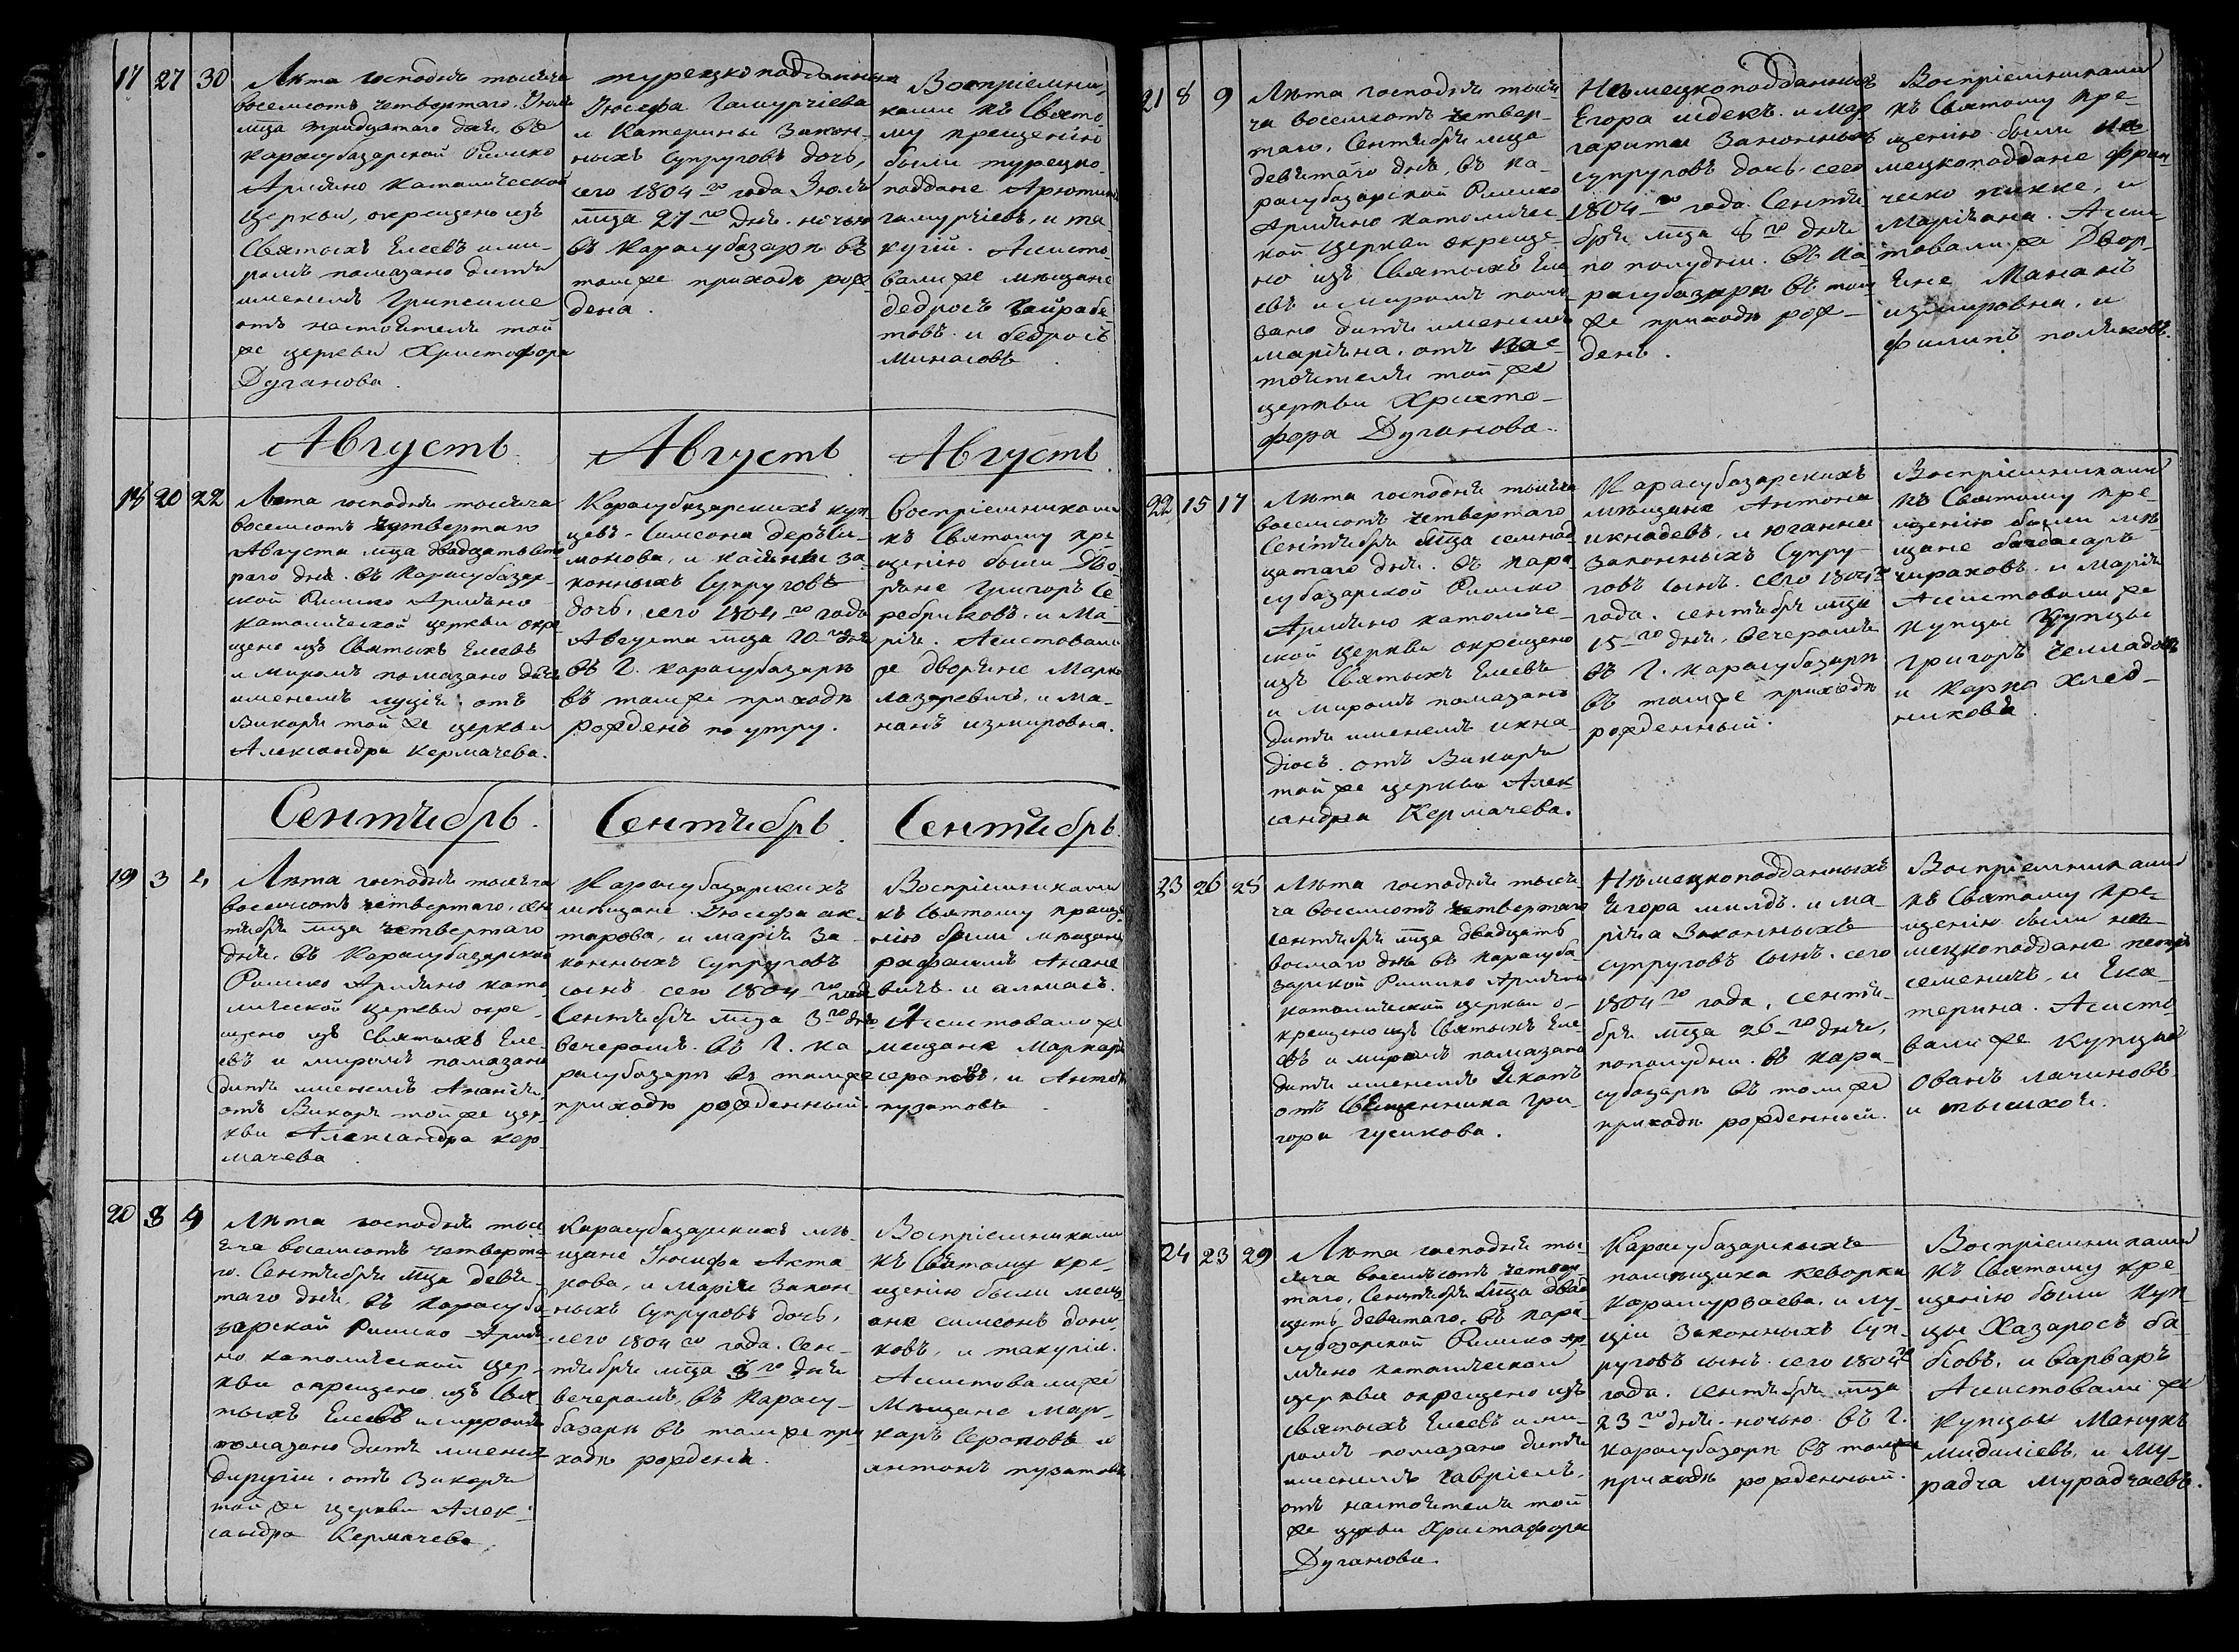 17 27 30
Лѣта господня тысяча
восемсотъ четвертаго, Июля
мца тридцатаго дня, въ
Карасубазарской Римско
Армяно католической
Церкви, окрещено изъ
Святыхъ Елеевъ и ми-
ромъ помазано дитя
именемъ Грипсиме
отъ настоятеля той
же церкви Христофора
Дуганова.
турецкоподданныхъ
Иосефа Гамурчіева
и Катерины Закон-
ныхъ Супруговъ дочь,
сего 1804 го года Июля
мца 27 го дня. ночью
въ Карасубазарѣ въ
томже приходѣ рож-
дена.
Воспріемни,
ками къ Свято
му крещенію
были турецко-
поддане Арютинъ
гамурчіевъ, и та
кугій. Асисто-
вали же мѣщане
Бедросъ байрабе
товъ и бедросъ
Минасовъ.
Августъ.
Августъ.
Августъ.
18 20 22
Лѣта господня тысяча
восемсотъ четвертаго
Августа мца двадцать вто
раго дня. въ Карасубазар-
ской Римско Армяно-
католической церкви окре
щено изъ Святыхъ Елеевъ
и миромъ помазано дитя
именемъ луція, отъ
Викаря той же церкви
Александра Кермачева.
Карасубазарскихъ куп
цевъ. Симеона деръси-
монова, и за-
конныхъ Супруговъ
дочь, сего 1804 го года
Августа мца 20 го дня
въ Г. карасубазарѣ
въ томже приходѣ
рожденъ по утру.
Воспріемниками
къ Святому кре
щенію были Дво-
ряне Григоръ Се
ребряковъ, и Ма-
рія. Асистовали
же дворяне Марко
лазаревичъ, и Ма-
нанъ измировна.
Сентябрь.
Сентябрь.
Сентябрь.
19 3 4
Лѣта господня тысяча
восемсотъ четвертаго, сен
тября мца четвертаго
дня, въ Карасубазарской
Римско Армяно като
лической церкви окре-
щено изъ Святыхъ Еле-
евъ и миромъ помазано
дитя именемъ Ананія,
отъ Викаря той же цер
кви Александра кер
мачева.
Карасубазарскихъ
мѣщане Иосефа ак-
тарова, и маріи за-
конныхъ супруговъ
сынъ сего 1804 го года
Сентября мца 3 го дня
вечеромъ. въ Г. Ка
расубазарѣ въ томже
приходѣ рожденный.
Воспріемниками
къ Святому креще
нію были мѣщане
рафаилъ Анане
вичъ. и алмасъ.
Асистовали же
мещане Маркаръ
сероповъ, и Антонъ
пузатовъ.
20 3 9
Лѣта господня тыс
яча восемсотъ четверта
го. Сентября мца девя-
таго дня, въ Карасуба
зарской Римско-Армя
но католической цер-
кви окрещено изъ Свя
тыхъ Елеевъ и миромъ
помазано дитя именемъ
отъ Викаря
той же церкви Алек-
сандра Кермачева.
Карасубазарскихъ мѣ-
щане Иосифа Акта-
рова, и Маріи закон
ныхъ Супруговъ дочь,
сего 1804 го года. Сен-
тября мца 3 го дня
вечеромъ, въ Карасу-
базарѣ въ томже при
ходѣ рождена.
Воспріемниками
къ Святому кре-
щенію были мещ
ане симеонъ дони-
ковъ, и такугія.
Асистовали же
Мѣщане Мар-
каръ Сероповъ и
антонъ пузатовъ.
21 8 9
Лѣта господня тыся
ча восемсотъ четвер-
таго, Сентября мца
девятаго дня, въ Ка-
расубазарской Римско
Армяно католичес-
кой Церкви окреще-
но изъ Святыхъ Еле
евъ и миромъ пома-
зано дитя именемъ
маріяна, отъ нас-
тоятеля той же
церкви Христо-
фора Дуганова.
Нѣмецкоподданныхъ
Егора шдекъ. и Мар
гариты Законныхъ
супруговъ дочь. сего
1804 го года. Сентя-
бря мца 8 го дня
по полудни. въ Ка-
расубазарѣ въ том
же приходѣ рож-
денъ.
Воспріемниками
къ Святому кре-
щенію были нѣ-
мецкоподдане фран
ческо и
Маріяна. Асис-
товали же Двор-
яне Мананъ
измировна, и
Филипъ поляковъ.
22 15 17
Лѣта господня тысяча
восемсотъ четвертаго
Сентября мца семнад
цатаго дня. въ Кара
субазарской Римско
Армяно католиче-
ской церкви окрещено
изъ Святыхъ Елеевъ
и миромъ помазано
дитя именемъ икна
діосъ. отъ Викаря
той же церкви Алек
сандра Кермачева.
Карасубазарскихъ
мѣщане Антона
икнадевъ, и югана
законныхъ Супру-
говъ сынъ. сего 1804 го
года. сентября мца
15 го дня, вечеромъ
въ Г. карасубазарѣ
въ томже приходѣ
рожденный.
Воспріемниками
къ Святому кре-
щенію были мѣ
щане
чираховъ. и Марія
Асистовали же
купцы
Григоръ челладовъ
и Карпа хлеб-
никовъ.
23 26 28
Лѣта господня тыся-
ча восемсотъ четвертаго
сентября мца двадцать
восмаго дня въ Карасуба
зарской Римско Армяно
католической церкви о-
крещено изъ Святыхъ Еле-
евъ и миромъ помазано
дитя именемъ Якопъ
отъ Священника Гри-
гора гусикова.
Нѣмецкоподданныхъ
Егора милдъ. и ма-
ріна Законныхъ
супруговъ сынъ. сего
1804 го года, сентя-
бря мца 26 го дня,
пополудни. въ Кара-
субазарѣ въ томже
приходѣ рожденный.
Воспріемниками
къ Святому кре-
щенію были нѣ-
мецкоподдане петръ
семеничъ, и Ека-
терина. Асисто
вали же купцы
Ованъ лачиновъ.
и
24 23 29
Лѣта господня ты-
сяча восемсотъ четвер
таго, Сентября мца двад
цать девятаго, въ Кара-
субазарской Римско Ар
мяно католической
церкви окрещено изъ
святыхъ Елеевъ и ми-
ромъ помазано дитя
именемъ гавріелъ,
отъ настоятеля той
же церкви Христафора
Дуганова.
Карасубазарскихъ
помѣщика кеворка
карамурзаева, и лу-
ціи Законныхъ Суп-
руговъ сынъ. сего 1804 го
года. сентября мца
23 го дня. ночью въ Г.
карасубазарѣ въ томже
приходѣ рожденный.
Воспріемниками
къ Святому кре-
щенію были куп-
цы Хазаросъ ба-
біовъ, и Варваръ
Асистовали же
купцы Манукъ
мидаліевъ, и Му-
радча мурадчаевъ.